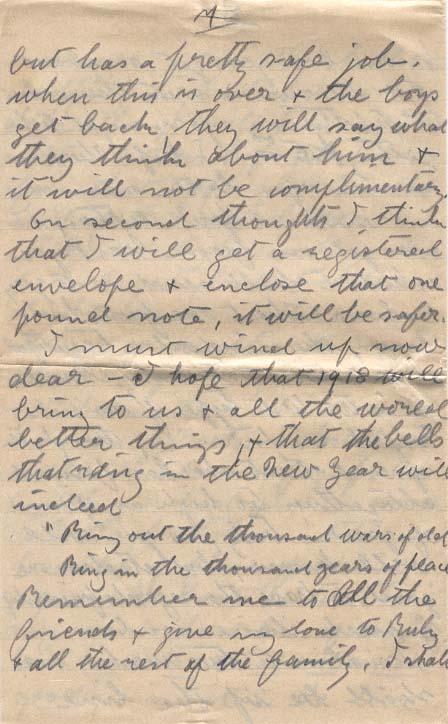 4
but has a pretty safe job.
when this is over & the boys
get back, they will say what
they think about him &
it will not be complimentary.
On second thoughts I think
that I will get a registered
envelope & enclose that one
pound note, it will be safer.
I must wind up now
dear – I hope that 1918 will
bring to us & all the world
better things, & that the bells
that ring in the New Year will
indeed
"Ring out the thousand wars of old
Ring in the thousand years of peace
Remember me to all the
friends & give my love to Ruby
& all the rest of the family. I shall